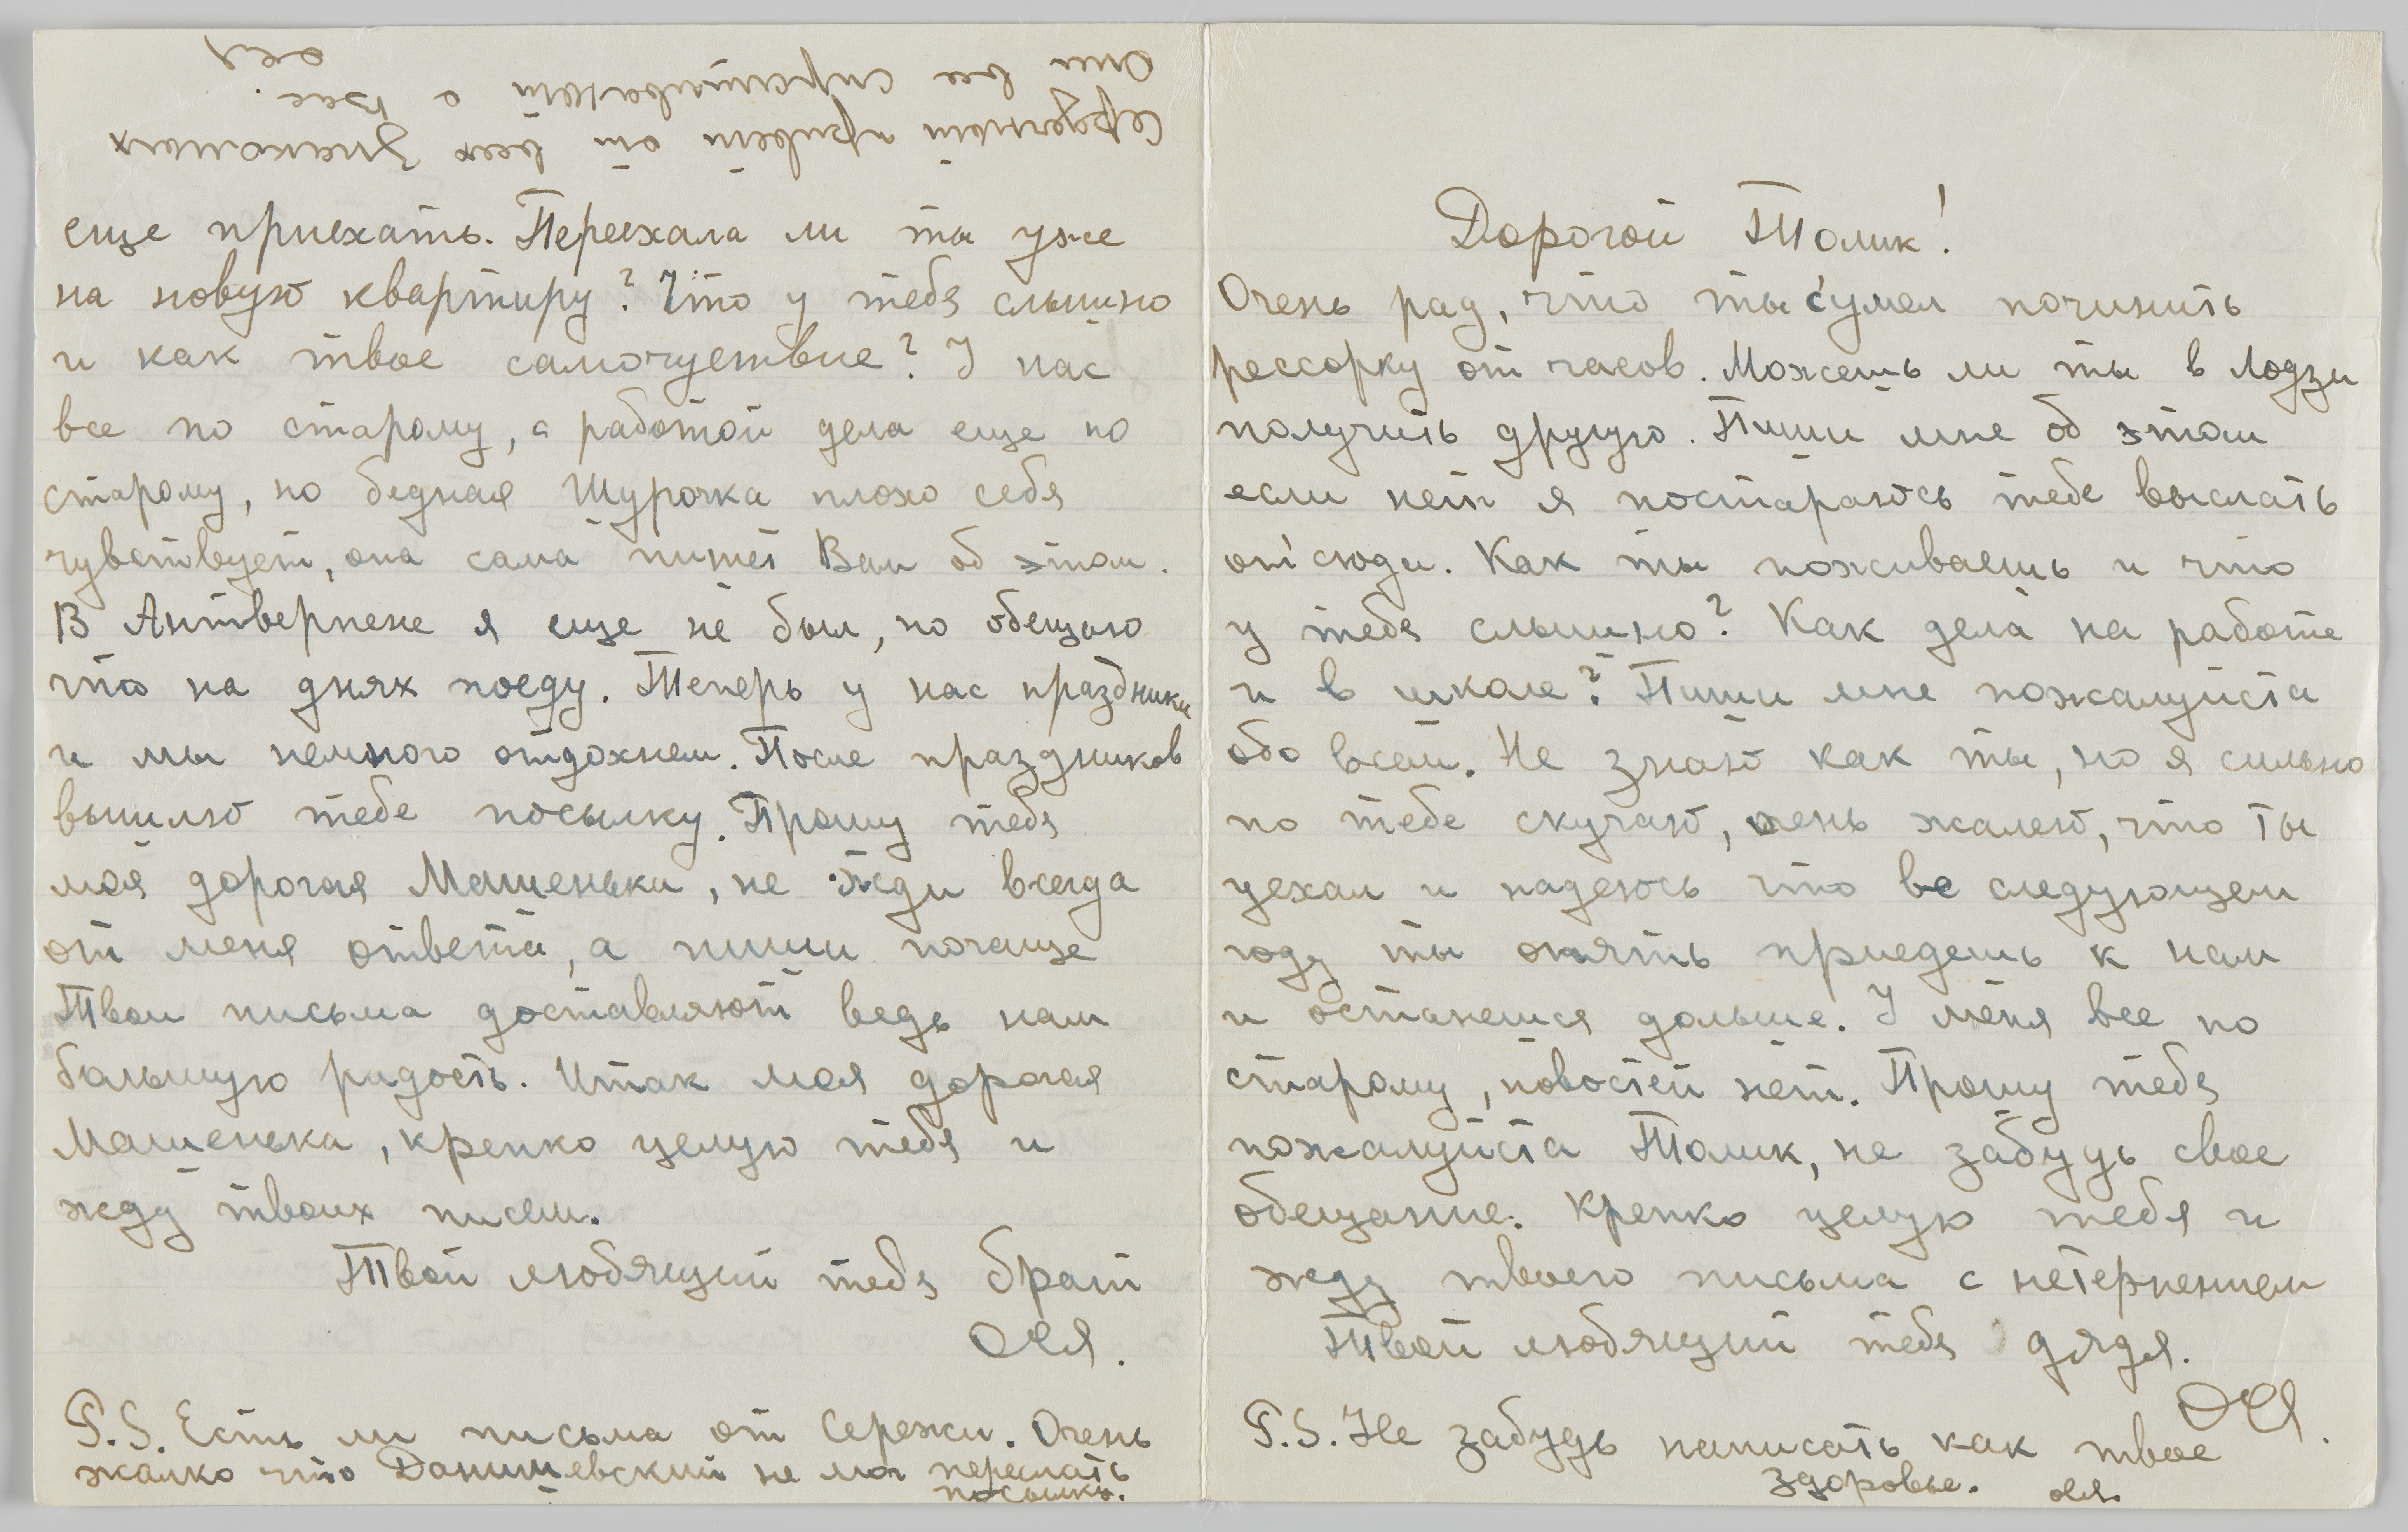 еще приехать. Переехала ли ты уже
на новую квартиру? Что у тебя слышно
и как твое самочуствие? У нас
все по старому, с работой дела еще по
старому, но бедная Шурочка плохо себя
чувствует, она сама пишет Вам об этом.
В Антверпене я еще не был, но обещаю
что на днях поеду. Теперь у нас праздники
и мы немного отдохнем. После праздников
вышлю тебе посылку. Прошу тебя
моя дорогая Машенька, не жди всегда
от меня ответа, а пиши почаще
Твои письма доставляют ведь нам
большую радость. Итак моя дорогая
Машенька, крепко целую тебя и
жду твоих писем.
Твой любящий тебя брат
Ося.
P.S. Есть ли письма от Сережи. Очень
жалко что Данишевский не мог переслать
посылку.
Сердечный привет от всех знакомых
Они все спрашивают о Вас.
Ося
Дорогой Толик!
Очень рад, что ты сумел починить
рессорку от часов. Можешь ли ты в Лодзи
получить другую. Пиши мне об этом
если нет я постараюсь тебе выслать
отсюда. Как ты поживаешь и что
у тебя слышно? Как дела на работе
и в школе? Пиши мне пожалуйста
обо всем. Не знаю как ты, но я сильно
по тебе скучаю, очень жалею, что ты
уехал и надеюсь что в следующем
году ты опять приедешь к нам
и останешся дольше. У меня все по
старому, новостей нет. Прошу тебя
пожалуйста Толик, не забудь свое
обещание. Крепко целую тебя и
жду твоего письма с нетерпением
Твой любящий тебя дядя.
Ося.
P.S. Не забудь написать как твое
здоровье. Ося.